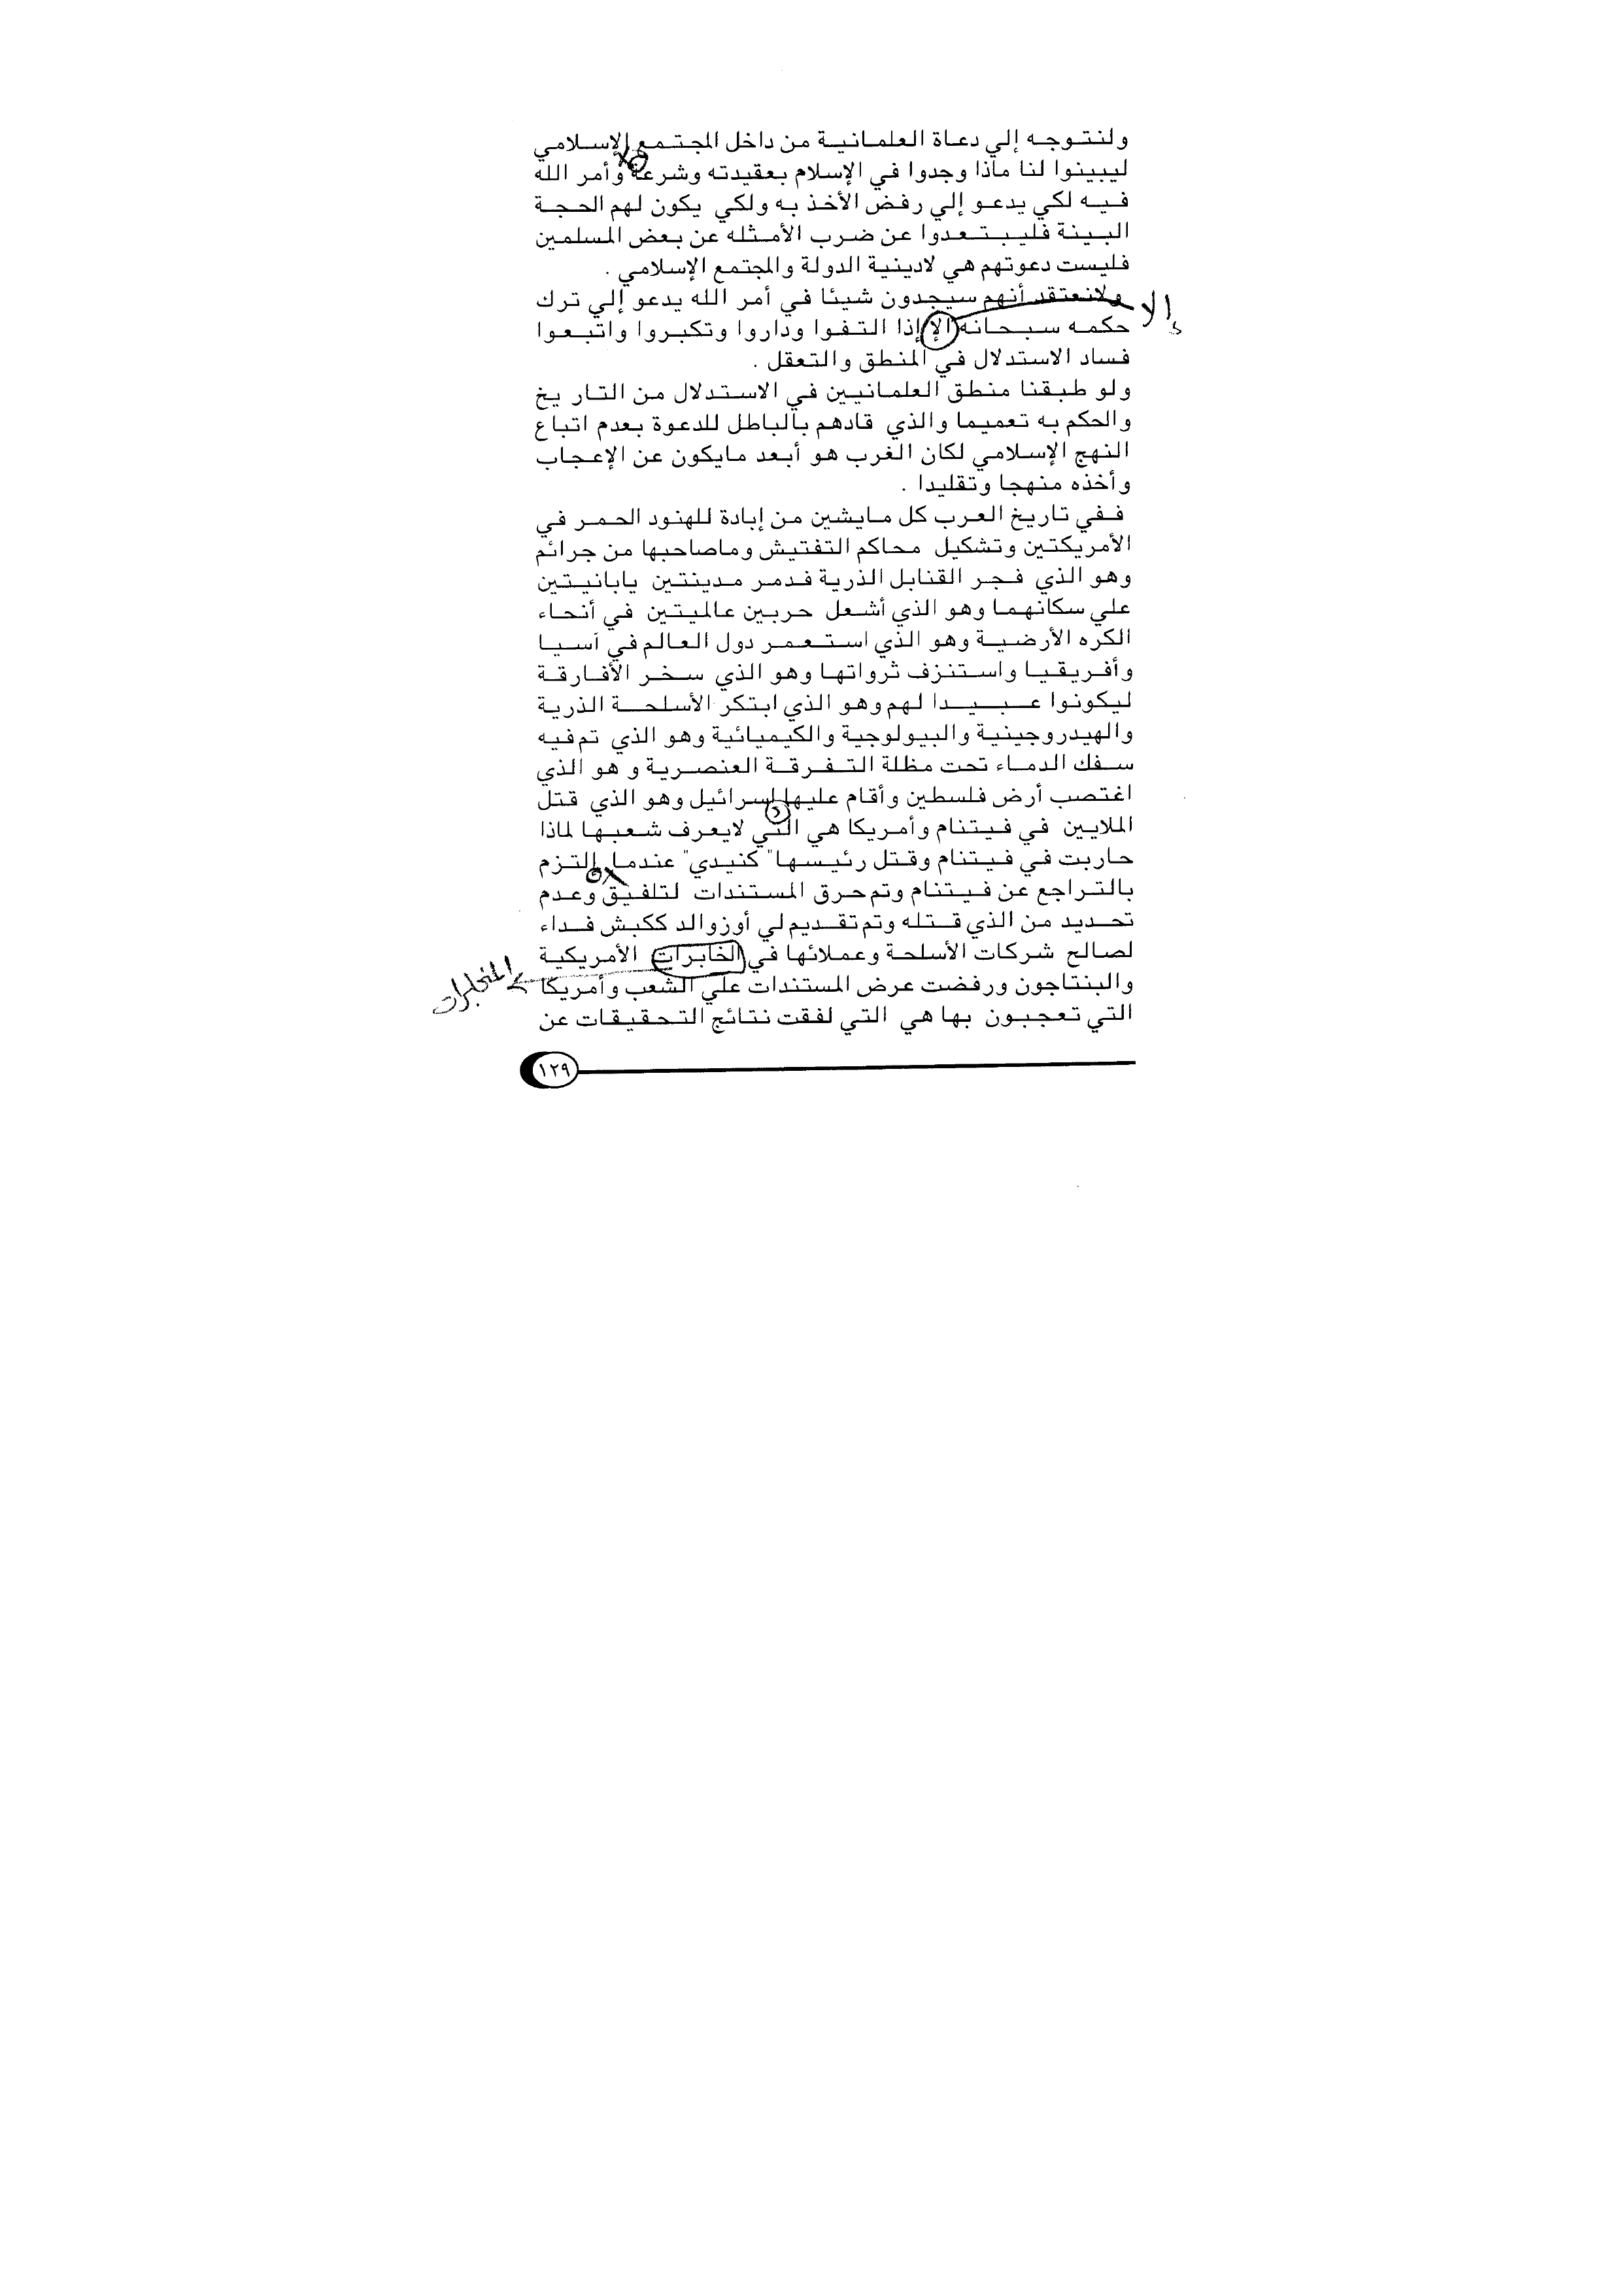 ولنتوجه إلي دعاة العلمانية من داخل المجتمع الإسلامي
ليبينوا لنا ماذا وجدوا في الإسلام بعقيدته وشرعة وأمر الله
فيه لكي يدعو إلي رفض الأخذ به ولكي يكون لهم الحجة
البينة فليبتعدوا عن ضرب الأمثله عن بعض المسلمين
فليست دعوتهم هي لادينية الدولة والمجتمع الإسلامي .
ولانعتقد أنهم سيجدون شيئا في أمر الله يدعو إلي ترك
إلا
حكمه سبحانه الإ إذا التفوا وداروا وتكبروا واتبعوا
فساد الاستدلال في المنطق والتعقل .
ولو طبقنا منطق العلمانيين في الاستدلال من التار يخ
والحكم به تعميما والذي قادهم بالباطل للدعوة بعدم اتباع
النهج الإسلامي لكان الغرب هو أبعد مايكون عن الإعجاب
وأخذه منهجا وتقليدا .
ففي تاريخ العرب كل مايشين من إبادة للهنود الحمر في
الأمريكتين وتشكيل محاكم التفتيش وماصاحبها من جرائم
وهو الذي فجر القنابل الذرية فدمر مدينتين يابانيتين
علي سكانهما وهو الذي أشعل حربين عالميتين في أنحاء
الكره الأرضية وهو الذي استعمر دول العالم في آسيا
وأفريقيا واستنزف ثرواتها وهو الذي سخر الأفارقة
ليكونوا عبيدا لهم وهو الذي ابتكر الأسلحة الذرية
والهيدروجينية والبيولوجية والكيميائية وهو الذي تم فيه
سفك الدماء تحت مظلة التفرقة العنصرية و هو الذي
اغتصب أرض فلسطين وأقام عليها إسرائيل وهو الذي قتل
الملايين في فيتنام وأمريكا هي التي لايعرف شعبها لماذا
حاربت في فيتنام وقتل رئيسها" كنيدي" عندما إلتزم
بالتراجع عن فيتنام وتم حرق المستندات لتلفيق وعدم
تحديد من الذي قتله وتم تقديم لي أوزوالد ككبش فداء
لصالح شركات الأسلحة وعملائها في الخابرات الأمريكية
المخابرات
والبنتاجون ورفضت عرض المستندات علي الشعب وأمريكا
التي تعجبون بها هي التي لفقت نتائج التحقيقات عن
١٢٩